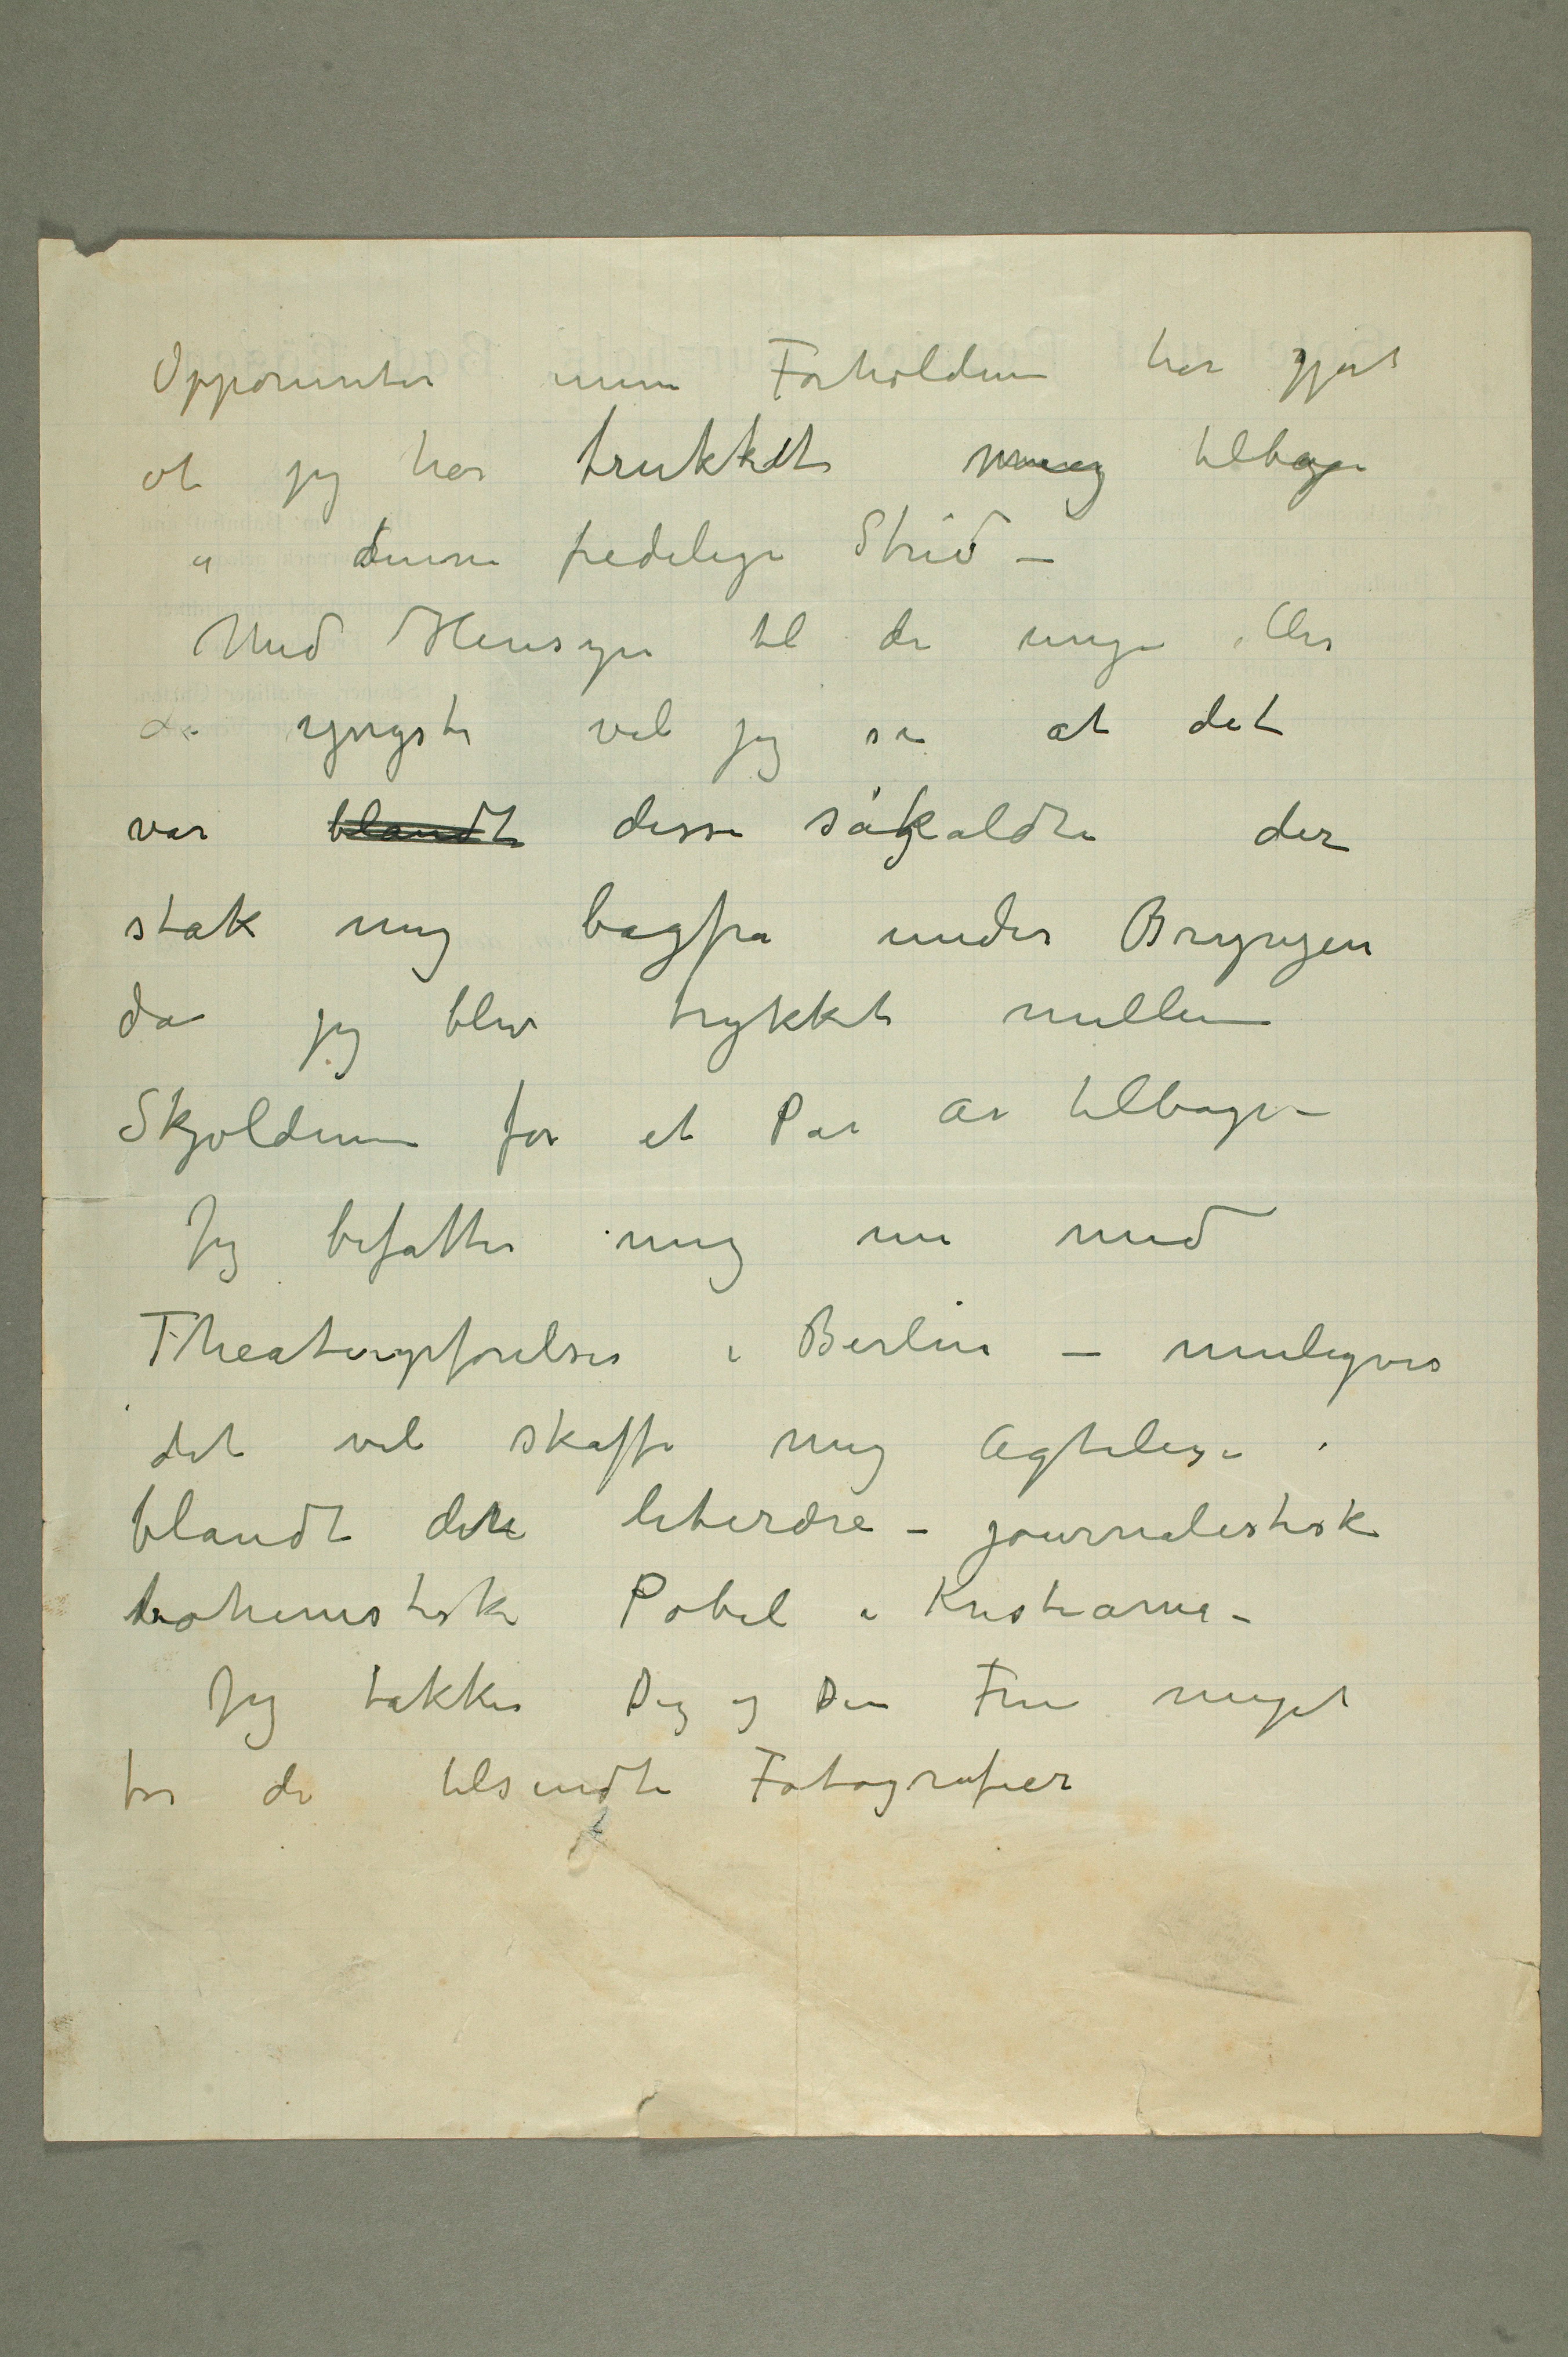 Opponenter men Forholdene har gjort
at jeg har trukket mig tilbage
i denne fredelige Strid –
Med Hensyn til de unge eller
de yngste vil jeg si at det
var blandt disse såkaldte der
stak mig bagfra under Brynjen
da jeg blev trykket mellem
Skjoldene for et Par År tilbage –
Jeg befatter mig nu med
Theateropførelser i Berlin – muligvis
det vil skaffe mig Agtelse
blandt den literære – journalistisk
bohemistiske Pøbel i Kristiania –
Jeg takker Dig og Din Frue meget
for de tilsendte Fotografier